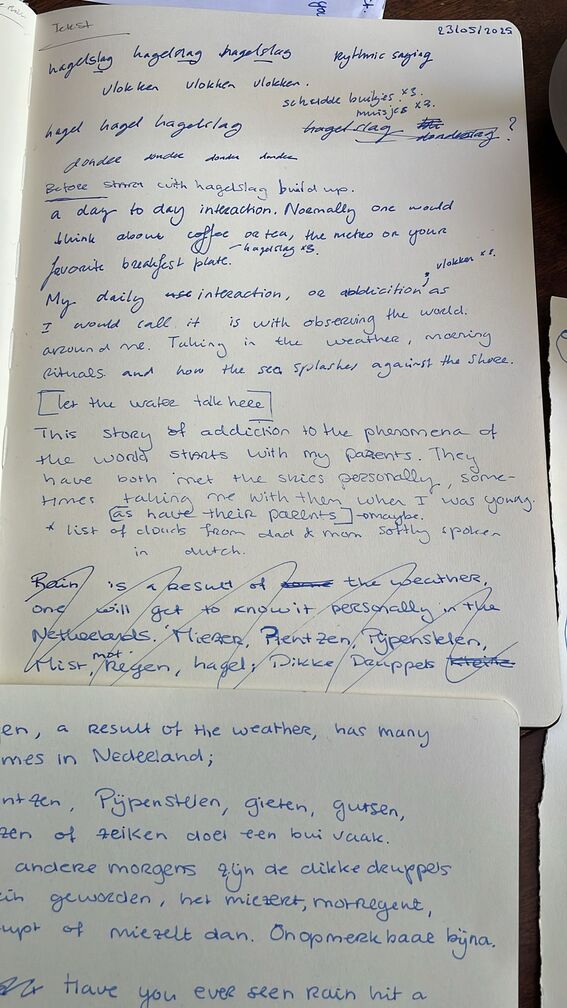 Tekst
23/05/2025
hagelslag hagelslag hagelslag rythmic saying
vlokken vlokken vlokken.
scheidde buikjes. x3.
muisjes x2.
hagel hagel hagelslag hagelslag donderslag ?
donder donder donder donder
Before start with hagelslag build up.
a day to day interaction. Normally one would
think about coffee or tea, the metro or your
- hagelslag x3.
favorite breakfest plate.
vlokken x2.
My daily use interaction, or addicition, as
I would call it is with observing the world.
around me. Taking in the weather, morning
rituals and how the sea splashes against the shore.
[let the water talk here]
This story of addiction to the phenomena of
the world starts with my parents. They
have both met the skies personally, some-
times taking me with them when I was young.
[as have their parents] → maybe.
* list of clouds from dad & mom softly spoken
in dutch.
Rain is a result of some the weather,
one will get to know it personally in the
Netherlands. Miezer, Plentzen, Pijpenstelen,
mot
Mist, Regen, hagel; Dikke Druppels kleine
en, a result of the weather, has many
mes in Nederland;
ntzen, Pijpenstelen, gieten, gutsen,
zen of zeiken doet een bui vaak.
andere morgens zijn de dikke druppels
ein geworden, het miezert, motregent,
upt of miezelt dan. Onopmerkbaar bijna.
Have you ever seen Rain hit a